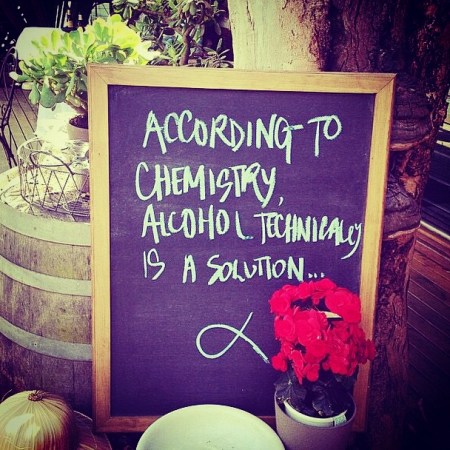 ACCORDING TO
CHEMISTRY,
ALCOHOL TECHNICALLY
IS A SOLUTION...